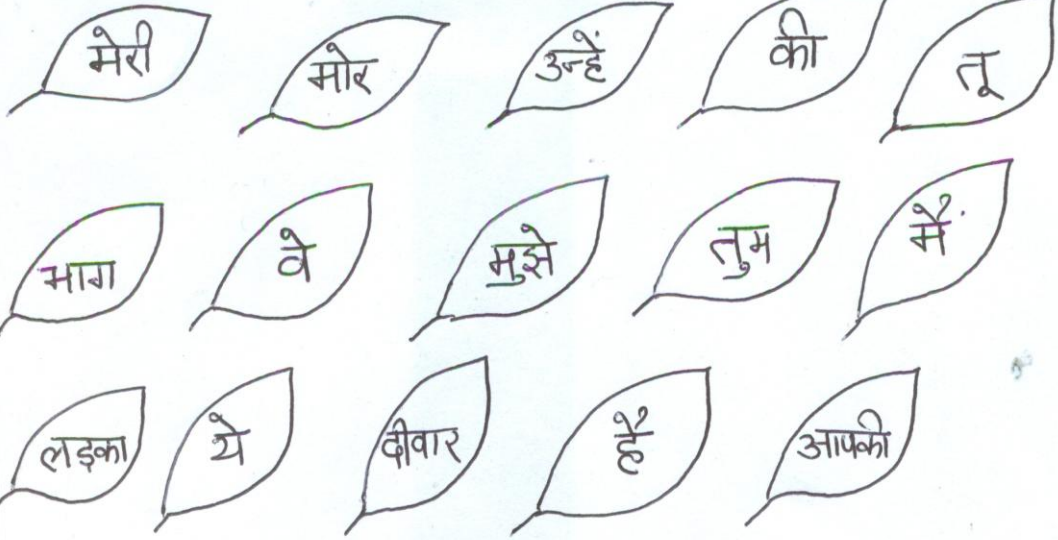 मेरी मोर उन्हें की तू
भाग वे मुझे तुम मैं
लड़का ये दीवार है आपकी